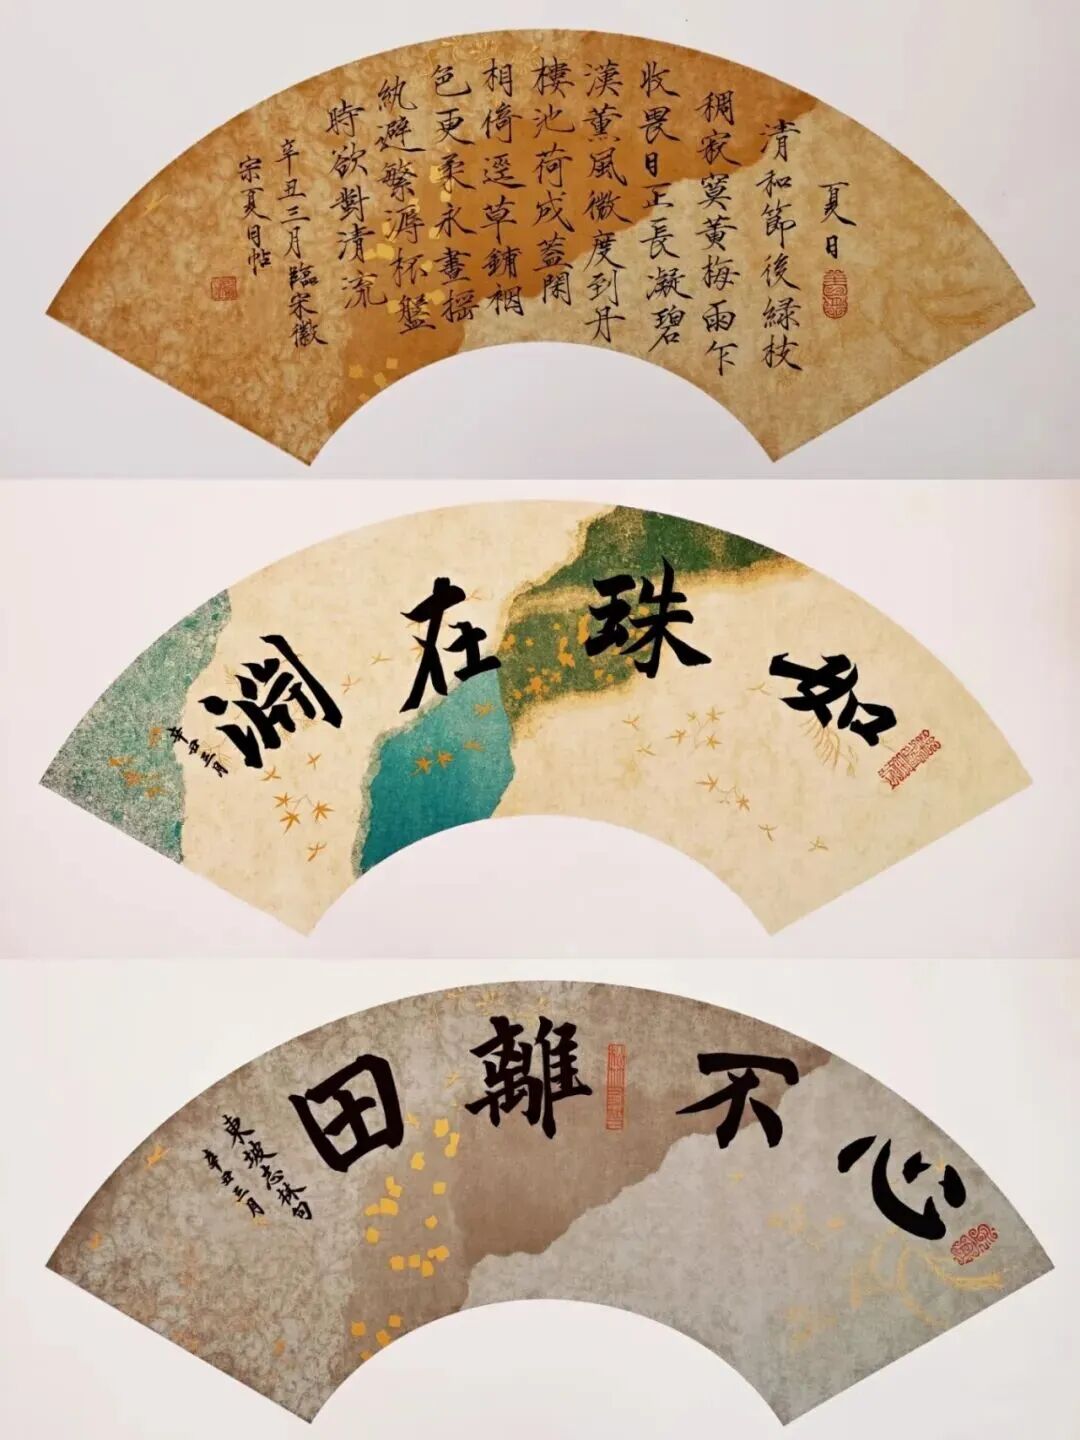 夏日
清和節後綠枝
稠寂寞黃梅雨乍
收畏日正長凝碧
漢薰風微度到丹
樓池荷成蓋閑
相倚逕草鋪裀
色更柔永晝搖
紈避繁溽杯盤
時欲對清流
辛丑三月臨宋徽
宗夏日帖
如珠在淵
辛丑三月
心不離田
東坡志林句
辛丑三月